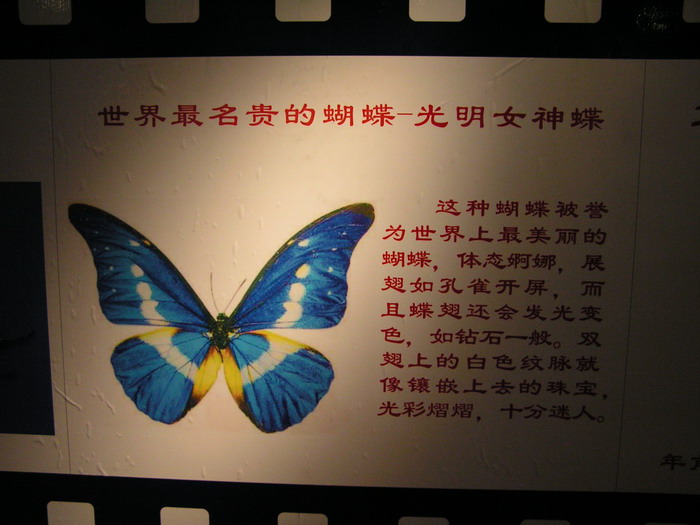 世界最名贵的蝴蝶-光明女神蝶
这种蝴蝶被誉
为世界上最美丽的
蝴蝶，体态婀娜，展
翅如孔雀开屏，而
且蝶翅还会发光变
色，如钻石一般。双
翅上的白色纹脉就
像镶嵌上去的珠宝，
光彩熠熠，十分迷人。